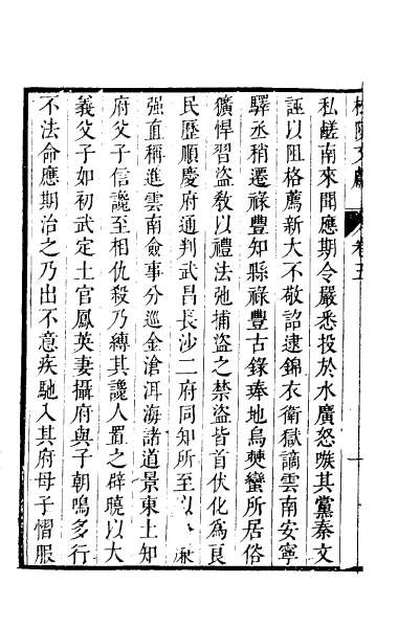 松陵文獻 卷五
私鹺南來聞應期令嚴悉投於水廣怒嗾其黨秦文
誣以阻格薦新大不敬詔逮錦衣衛獄謫雲南安寧
驛丞稍遷祿豐知縣祿豐古錄琫地烏爨蠻所居俗
獷悍習盜敎以禮法弛捕盜之禁盜皆首伏化爲良
民歷順慶府通判武昌長沙二府同知所至以
强直稱進雲南僉事分巡金滄洱海諸道景東土知
府父子信讒至相仇殺乃縛其讒人置之辟曉以大
義父子如初武定土官鳳英妻攝府與子朝鳴多行
不法命應期治之乃出不意疾馳入其府母子慴服